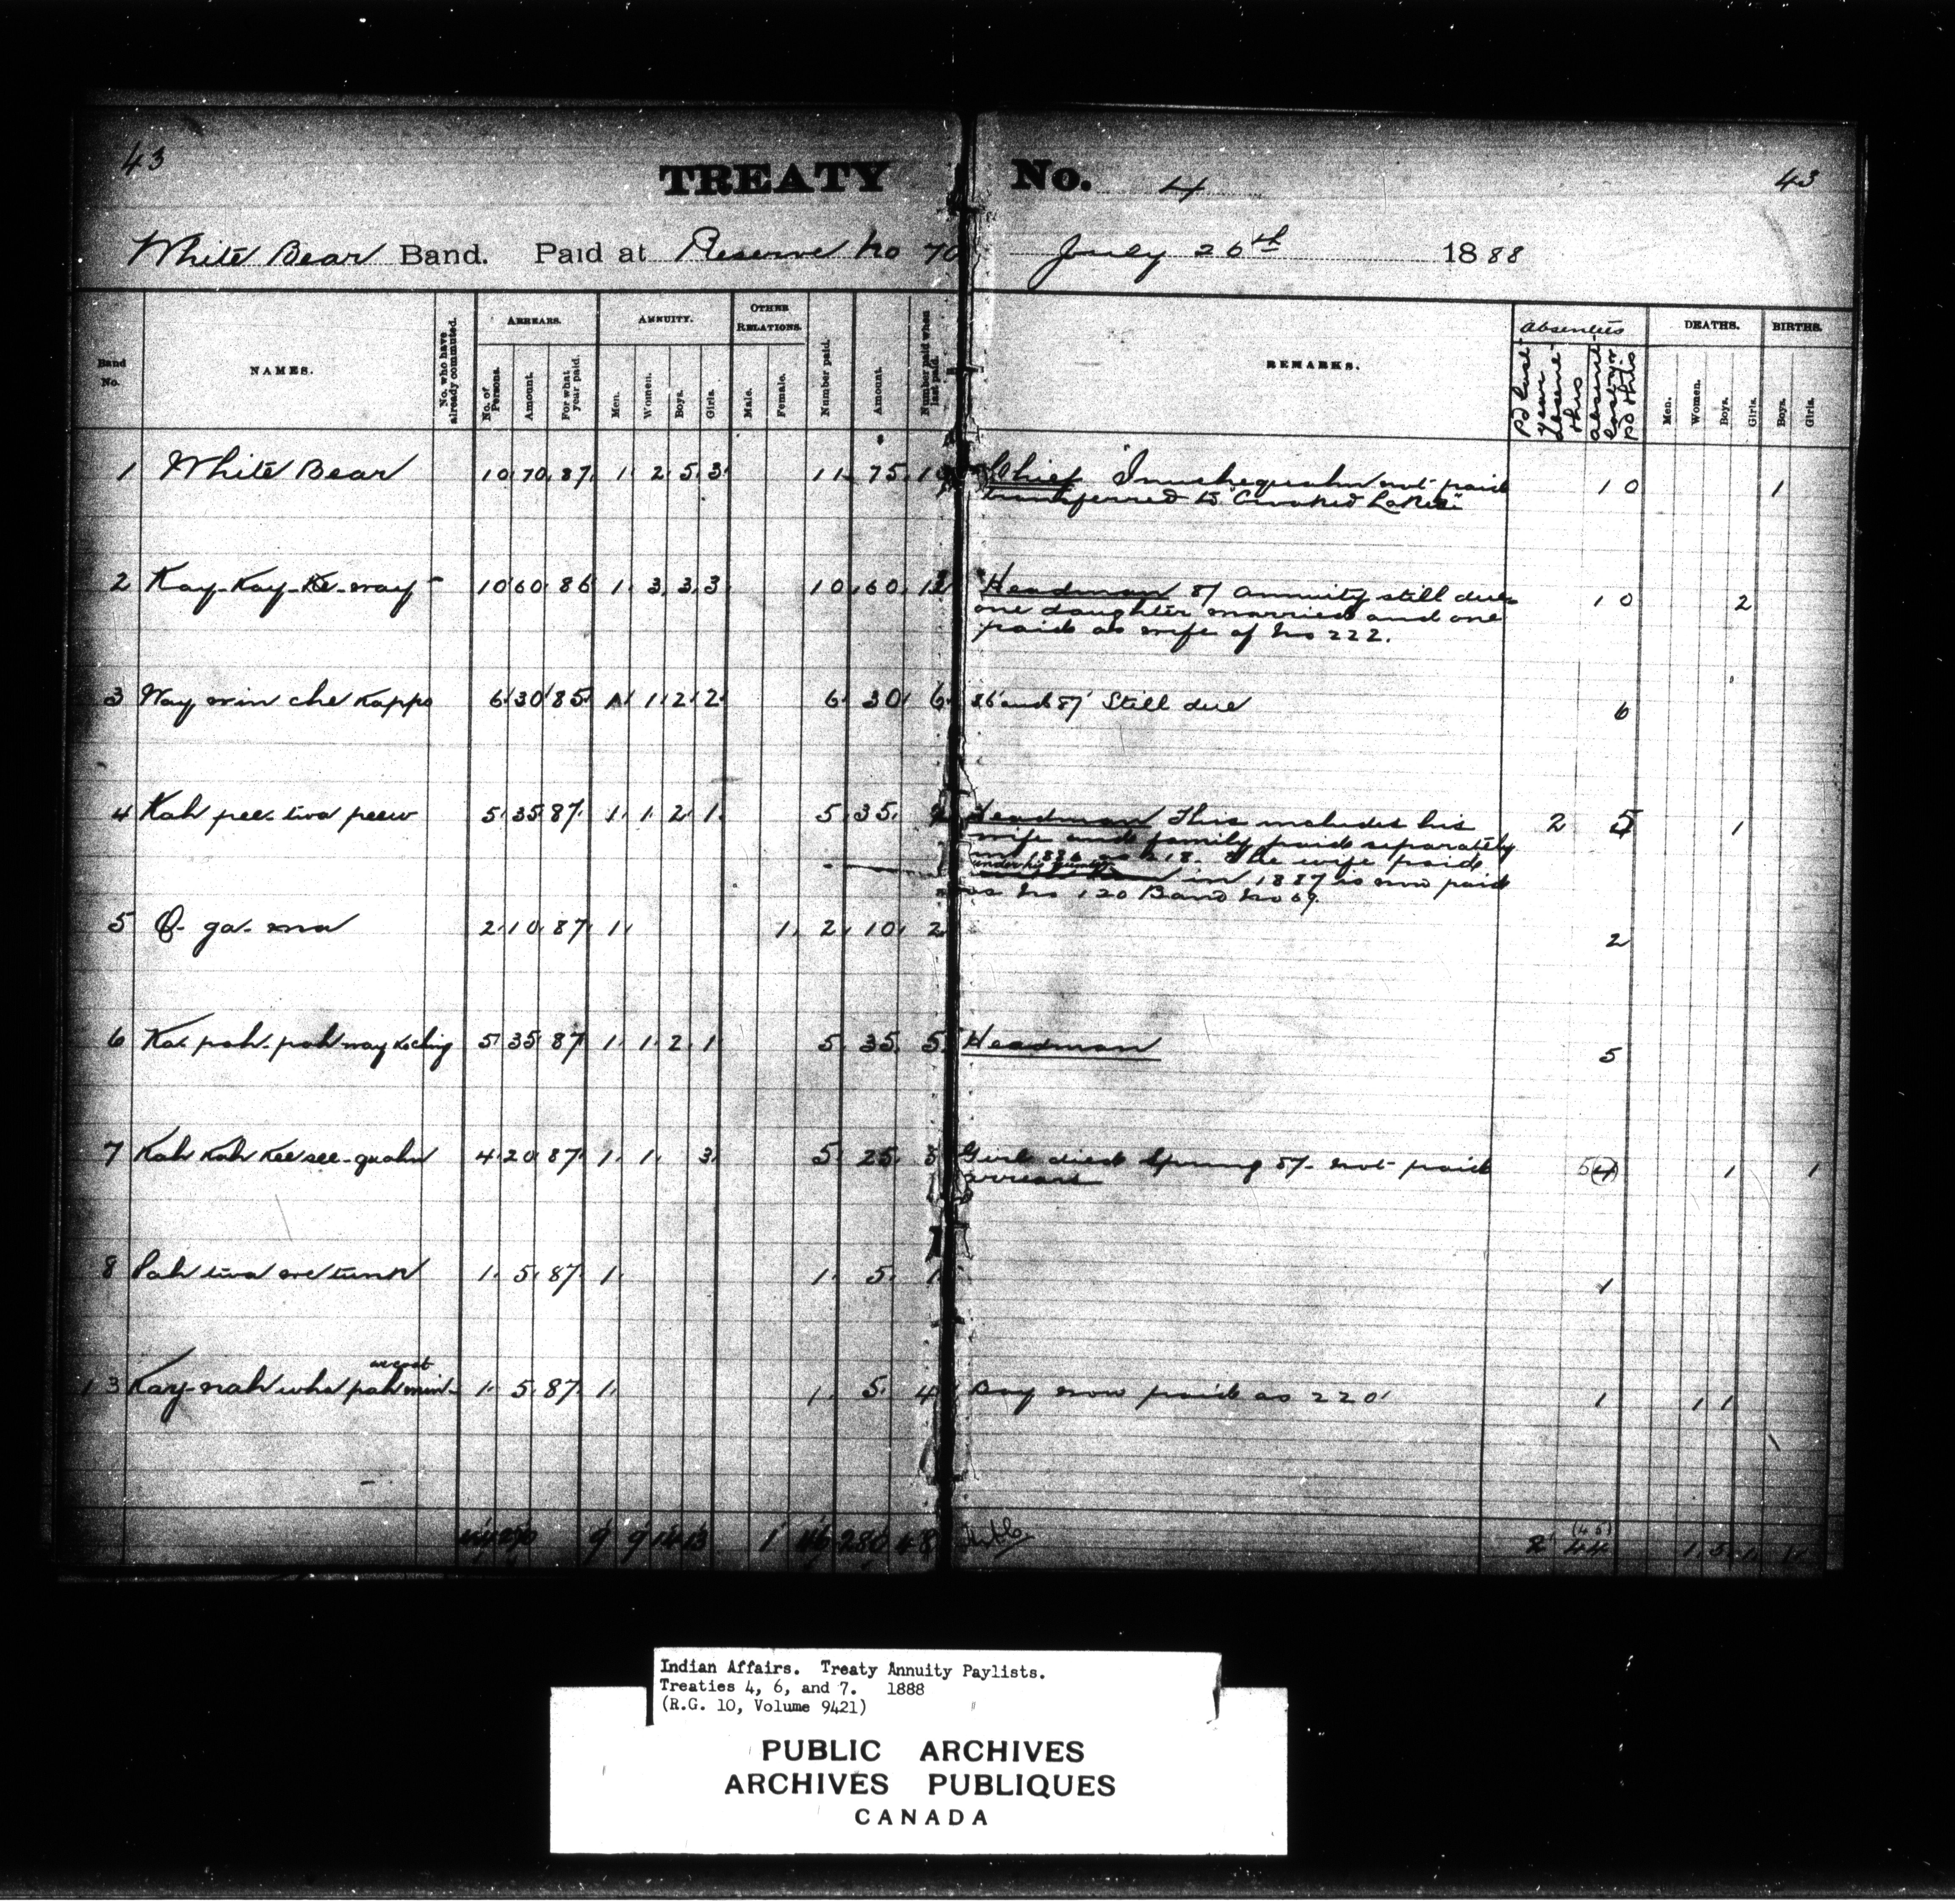 43
TREATY No. 4
43
White Bear Band. Paid at Reserve No 70 July 26th 1888
Band No.
NAMES.
No. who have already commuted.
ARREARS.
No. of Persons.
Amount.
For what year paid.
ANNUITY.
Men.
Women.
Boys.
Girls.
OTHER RELATIONS.
Male.
Female.
Number paid.
Amount.
Number paid when last paid.
REMARKS.
Absentees
Pd last year absent this
absent last yr pd this
DEATHS.
Men.
Women.
Boys.
Girls.
BIRTHS.
Boys.
Girls.
1 White Bear 10 70 87 1 2 5 3 11 75 Chief not paid 10 1
transferred to "Crooked Lakes"
2 Kay-Kay-Ke-way 10 60 86 1 3 3 3 10 60 Headman 87 Annuity still due 10 2
one daughter married and one
paid as wife of No 222.
3 Way win che Kappo 6 30 85 1 2 2 6 30 6 86 and 87 Still due 6
4 Kah pee twa peew 5 35 87 1 1 2 1 5 35 Headman This includes his 2 5 1
wife and family paid separately
in 1886 as 218. The wife paid
under his number in 1887 is now paid
as No 120 Band No 69.
5 O-ga-ma 2 10 87 1 1 2 10 2 2
6 Ka pah-pah-may 5 35 87 1 1 2 1 5 35 5 Headman 5
7 Kah Kah Kee see-quahn 4 20 87 1 1 3 5 25 5 Girl died Spring 87 not paid 5 (4) 1 1
arrears
8 Pah twa we tunk 1 5 87 1 1 5 1 1
13 Kay-nah wha pah min 1 5 87 1 1 5 4 Boy now paid as 220 1 1 1
44 290 9 9 14 13 1 46 280 48 2 (45) 44 1 5 1 1 1
Indian Affairs. Treaty Annuity Paylists.
Treaties 4, 6, and 7. 1888
(R.G. 10, Volume 9421)
PUBLIC ARCHIVES
ARCHIVES PUBLIQUES
CANADA